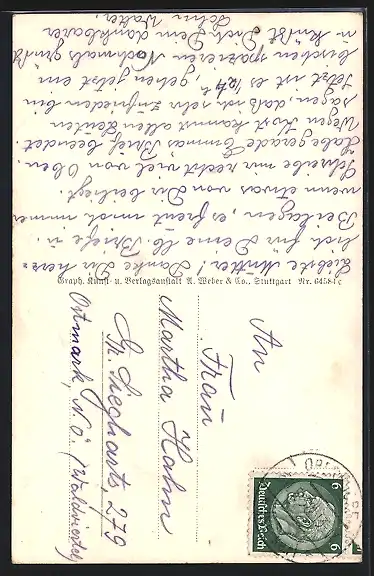 Liebste Mutter! Danke Dir herz-
lich für Deine lb. Briefe u.
Beilagen, es freut mich immer
wenn etwas von Dir beiliegt.
Schreibe mir recht viel von Oben.
Habe gerade Emmas Brief beendet.
Wegen Kost kannst allen Leuten
sagen, daß ich sehr zufrieden bin
Jetzt ist es 1/2 9h, gehen jetzt ein
bisschen spazieren. Nochmals grüßt
u. küßt Dich Dein dankbarer
Sohn Walter,
Graph. Kunst- u. Verlagsanstalt A. Weber & Co., Stuttgart Nr. 6458
An
Frau
Martha Hahn
Gr. Siegharts, 279
Ostmark, N. Ö. (Waldviertel)
Deutsches Reich
6 6